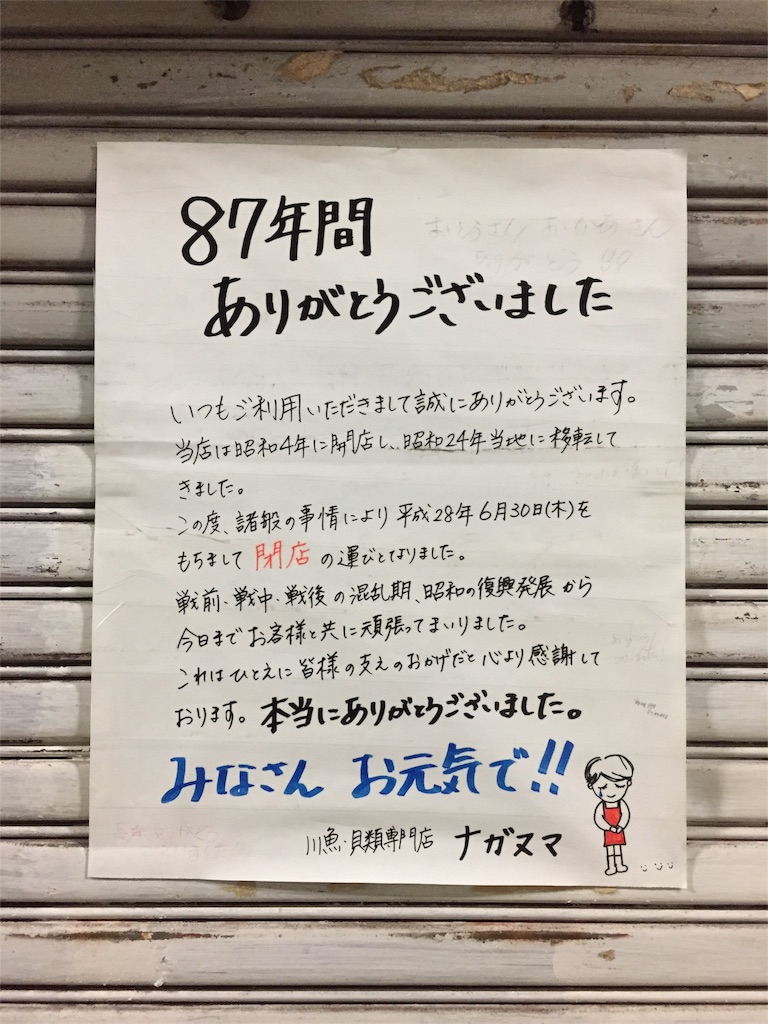 87年間
ありがとうございました
おとうさん おかあさん
ありがとう
いつもご利用いただきまして誠にありがとうございます。
当店は昭和4年に開店し、昭和24年当地に移転して
きました。
この度、諸般の事情により平成28年6月30日(木)を
もちまして閉店の運びとなりました。
戦前・戦中・戦後の混乱期、昭和の復興発展から
今日までお客様と共に頑張ってまいりました。
これはひとえに皆様の支えのおかげだと心より感謝して
おります。本当にありがとうございました。
みなさん お元気で!!
川魚・貝類専門店 ナガヌマ